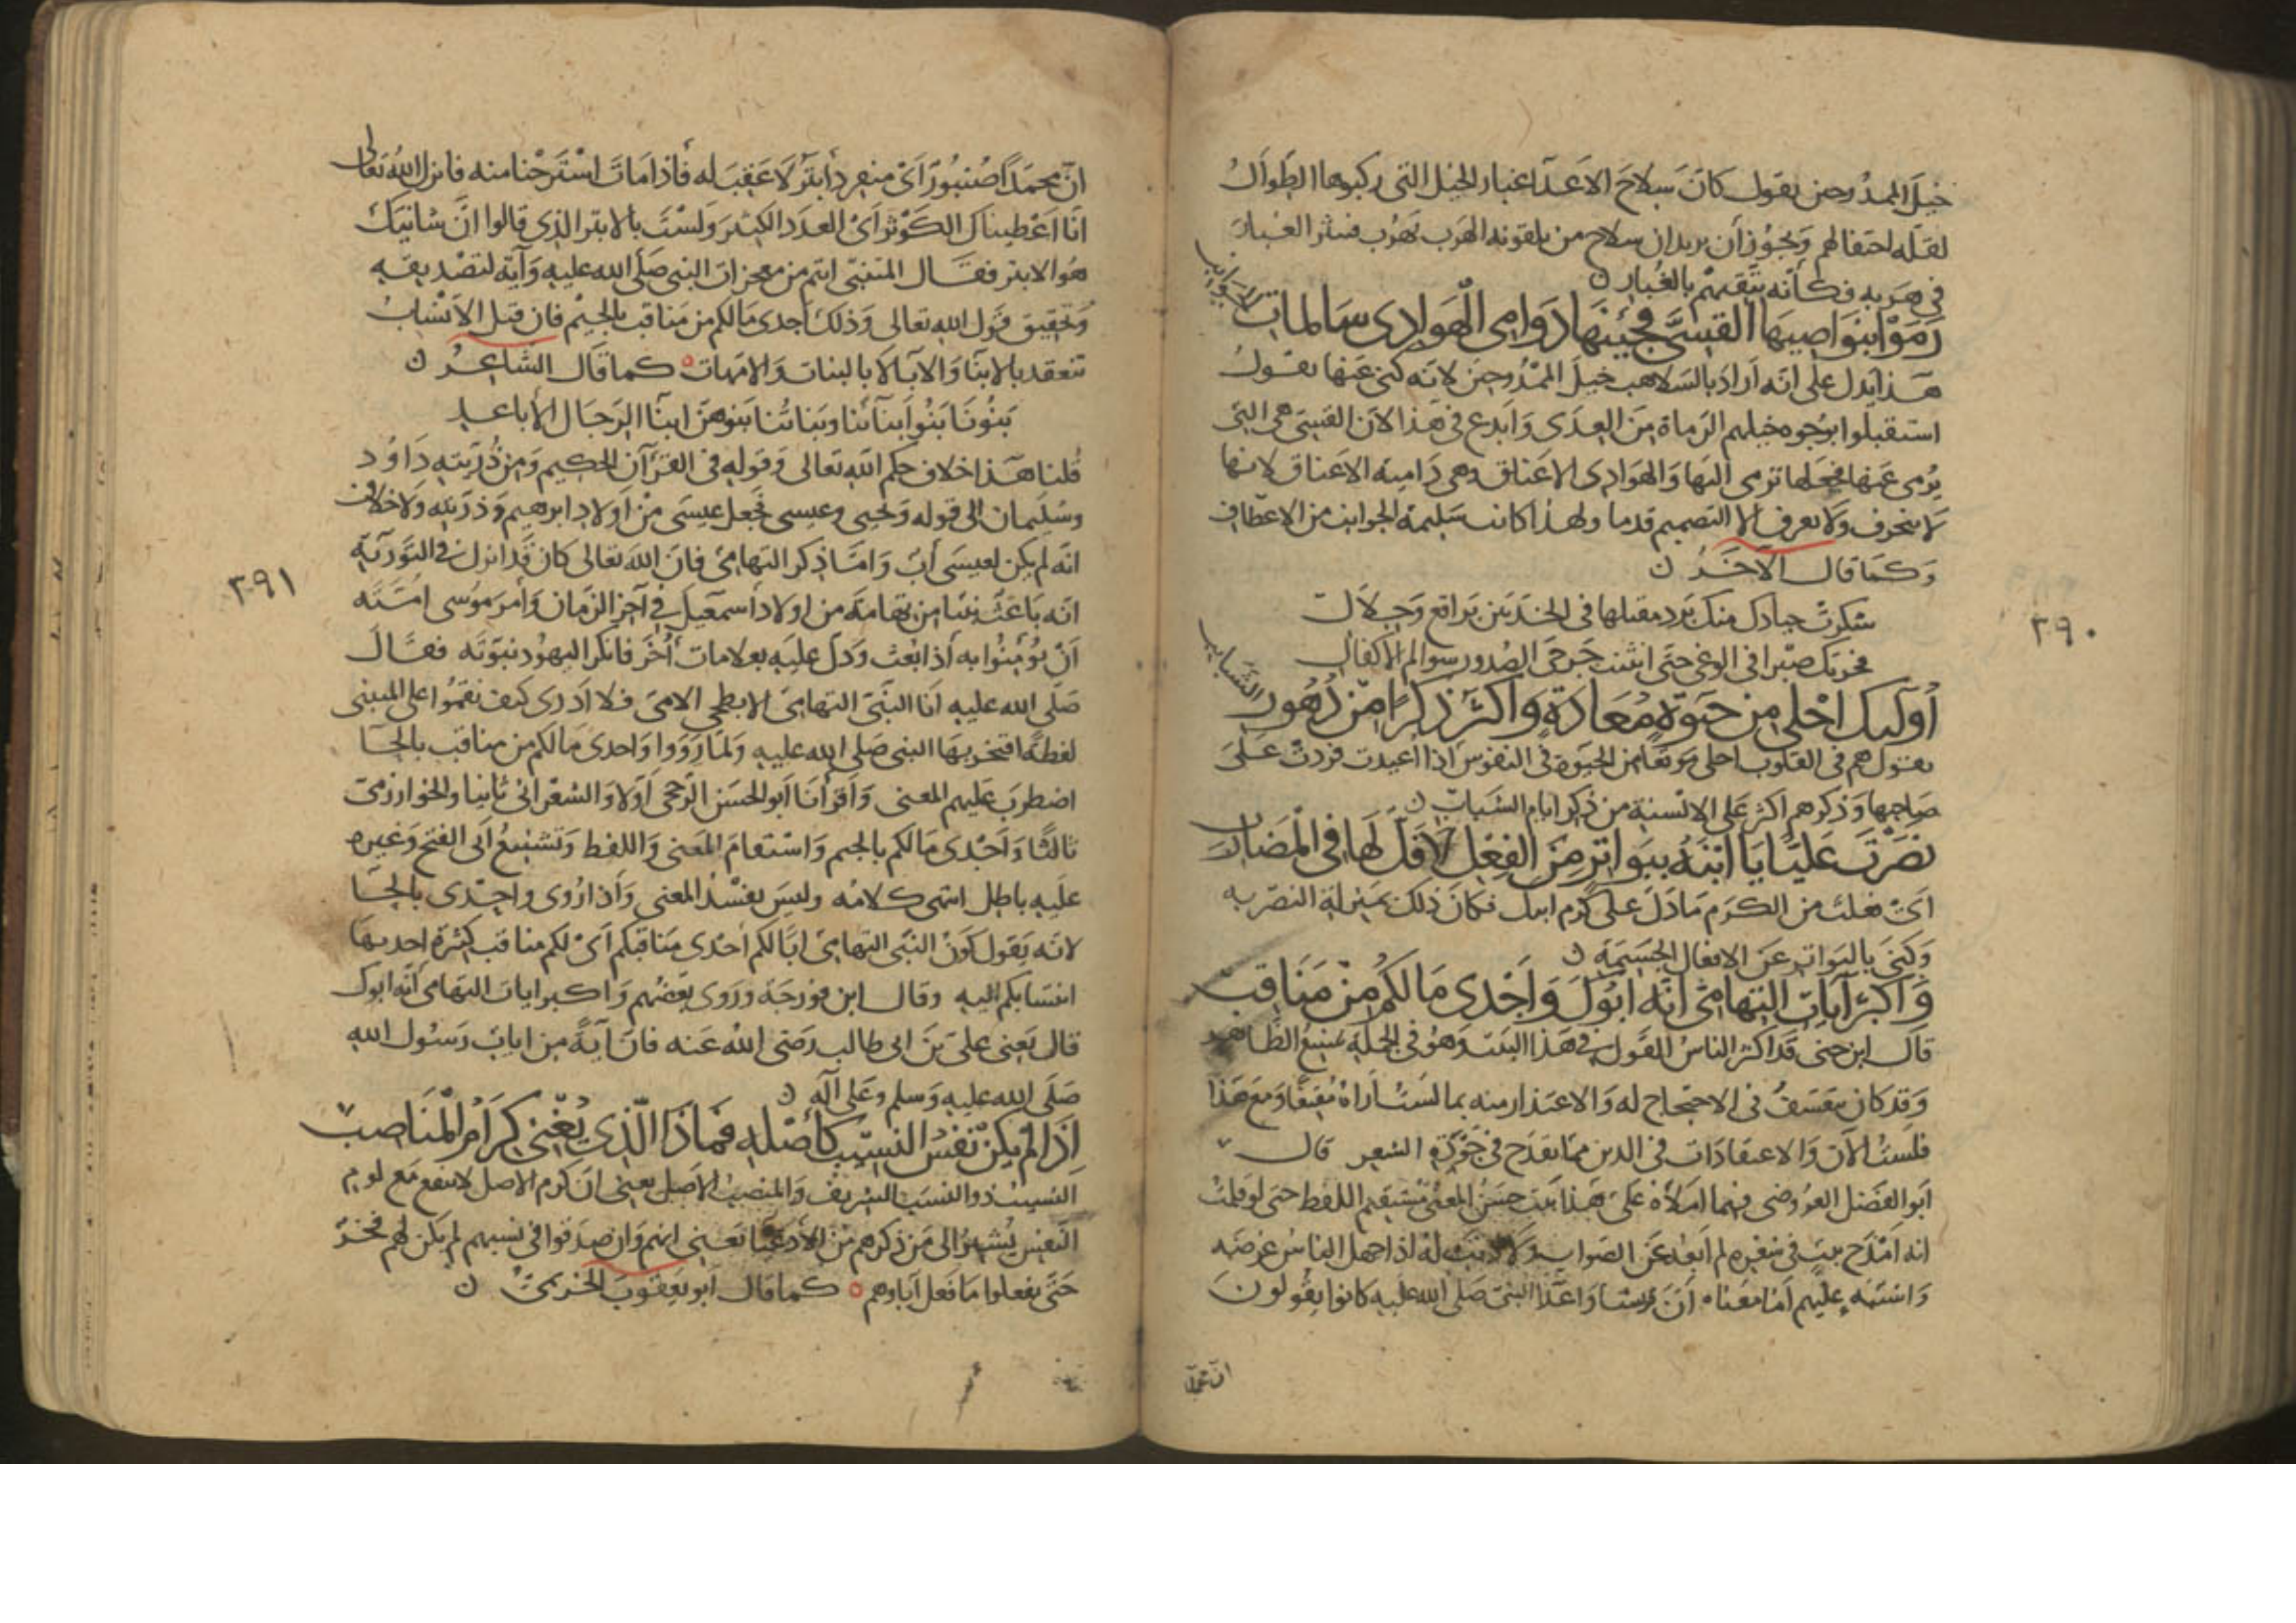 خيل الممدوحين يقول كان سلاح الاعدآ غبار الخيل التى ركبوها الطوال
لقلة احتفالهم ويجوز أن يريد ان سلاح من يلقونه الهرب يهرب فيثر الغبار
فى هربه فكأنه يتقيهم بالغبار ن
رَمَوْا بنواصيها القسىَّ فجئنها دوامى الهوادى سالمات الجوانب
هذا يدل على انه اراد بالسلاهب خيل الممدوحين لانه كنى عنها يقول
استقبلوا بوجوه خيلهم الرماة من العدى وابدع فى هذا لان القسى هى التى
يُرمى عنها فجعلها ترمى اليها والهوادى الاعناق وهى دامية الاعناق لانها
لا تنحرف ولا تعرف الا التصميم قدما ولهذا كانت سليمة الجوانب من الاعطاف
وكما قال الآخر ن
شكرت جيادك منك برد مقيلها فى الحر بين براقع وجلال
فجزتك صبرا فى الوغى حتى انثنت جرحى الصدور سوالم الاكفال
أولئك احلى من حيوة معادة واكثر ذكرا من دهور الشبائب
يقول هم فى القلوب احلى موقعا من الحيوة فى النفوس اذا اعيدت فردت على
صاحبها وذكرهم اكثر على الالسنة من ذكر ايام الشباب ن
نصرت عليًّا يا ابنه ببواتر من الفعل لا فل لها فى المضارب
اى فعلت من الكرم ما دل على كرم ابيك فكان ذلك بمنزلة النصر به
وكنى بالبواتر عن الافعال الجسيمة ن
واكبر آيات التهامىّ انه ابوك واجدى ما لكم من مناقب
قال ابن جنى قد اكثر الناس القول فى هذا البيت وهو فى الجملة شنيع الظاهر
وقد كان يتعسف فى الاحتجاج له والاعتذار منه بما لست أراه مقنعا ومع هذا
فليست الآن والاعتقادات فى الدين مما يقدح فى جودة الشعر قال
ابو الفضل العروضى فيما املاه على هذا بيت حسن المعنى مستقيم اللفظ حتى لو قلت
انه امدح بيت فى شعره لم ابعد عن الصواب ولا ذنب له اذا جهل الناس غرضه
واشتبه عليهم اما معناه أن قريشا واعدآ النبى صلى الله عليه كانوا يقولون
ان محمدا
انّ محمدًا صُنبُورٌ اى منفرد أبتر لا عقب له فأذا مات استرحنا منه فانزل الله تعالى
انا اعطيناك الكوثر اى العدد الكثير ولست بالابتر الذى قالوا انّ شانيك
هو الابتر فقال المتنبى انتم من معجزات النبى صلى الله عليه وآية لتصديقه
وتحقيق قول الله تعالى وذلك أجدى ما لكم من مناقب بالجيم فان قيل الانساب
تنعقد بالابنا والآبا لا بالبنات والامهات ٥ كما قال الشاعر ن
بَنُونَا بَنُوا ابنآئنا وبناتُنا بنوهن ابنآ الرجال الأباعد
قلنا هذا خلاف حكم الله تعالى وقوله فى القرآن الحكيم ومن ذريته داوُد
وسليمان الى قوله ويحيى وعيسى فجعل عيسى من اولاد ابرهيم وذريته ولا خلاف
انه لم يكن لعيسى أبٌ وامّا ذكر التهامىّ فان الله تعالى كان قد انزل فى التورية
انه باعث نبيّا من تهامة من اولاد أسمعيل فى آخر الزمان وأمر موسى امته
أن يؤمنوا به أذا بُعث ودل عليه بعلامات أُخر فانكر اليهود نبوته فقال
صلى الله عليه انا النبى التهامى الابطحى الامى فلا ادرى كيف نقموا على المتنبى
لفظة افتخر بها النبى صلى الله عليه ولما رووا واحدى ما لكم من مناقب بالحآ
اضطرب عليهم المعنى واقرأنا أبو الحسن الرخجى أولا والشعرانى ثانيا والخوارزمى
ثالثًا واجدى ما لكم بالجيم واستقام المعنى واللفظ وتشنيع أبى الفتح وغيره
عليه باطل انتهى كلامه وليس يفسد المعنى وأذا روى واحدى بالحآ
لانه يقول كون النبى التهامى أبًا لكم احدى مناقبكم أى لكم مناقب كثيرة احديها
انتسابكم اليه وقال ابن فورجة وروى بعضهم واكبر ايات التهامى آية ابوك
قال يعنى على بن ابى طالب رضى الله عنه فان آية من ايات رسول الله
صلى الله عليه وسلم وعلى آله ن
اذا لم يكن نفس النسيب كأصله فماذا الذى يُغنى كرام المناصب
النسيب ذو النسب الشريف والمنصب الاصل يعنى ان كرم الاصل لا ينفع مع لوم
النفس يُشير الى من ذكرهم من الأدعيا يعنى انهم وان صدقوا فى نسبهم لم يكن لهم فخر
حتى يفعلوا ما فعل آباوهم ٥ كما قال أبو يعقوب الخزيمىّ ن
٣٩٠
٣٩١